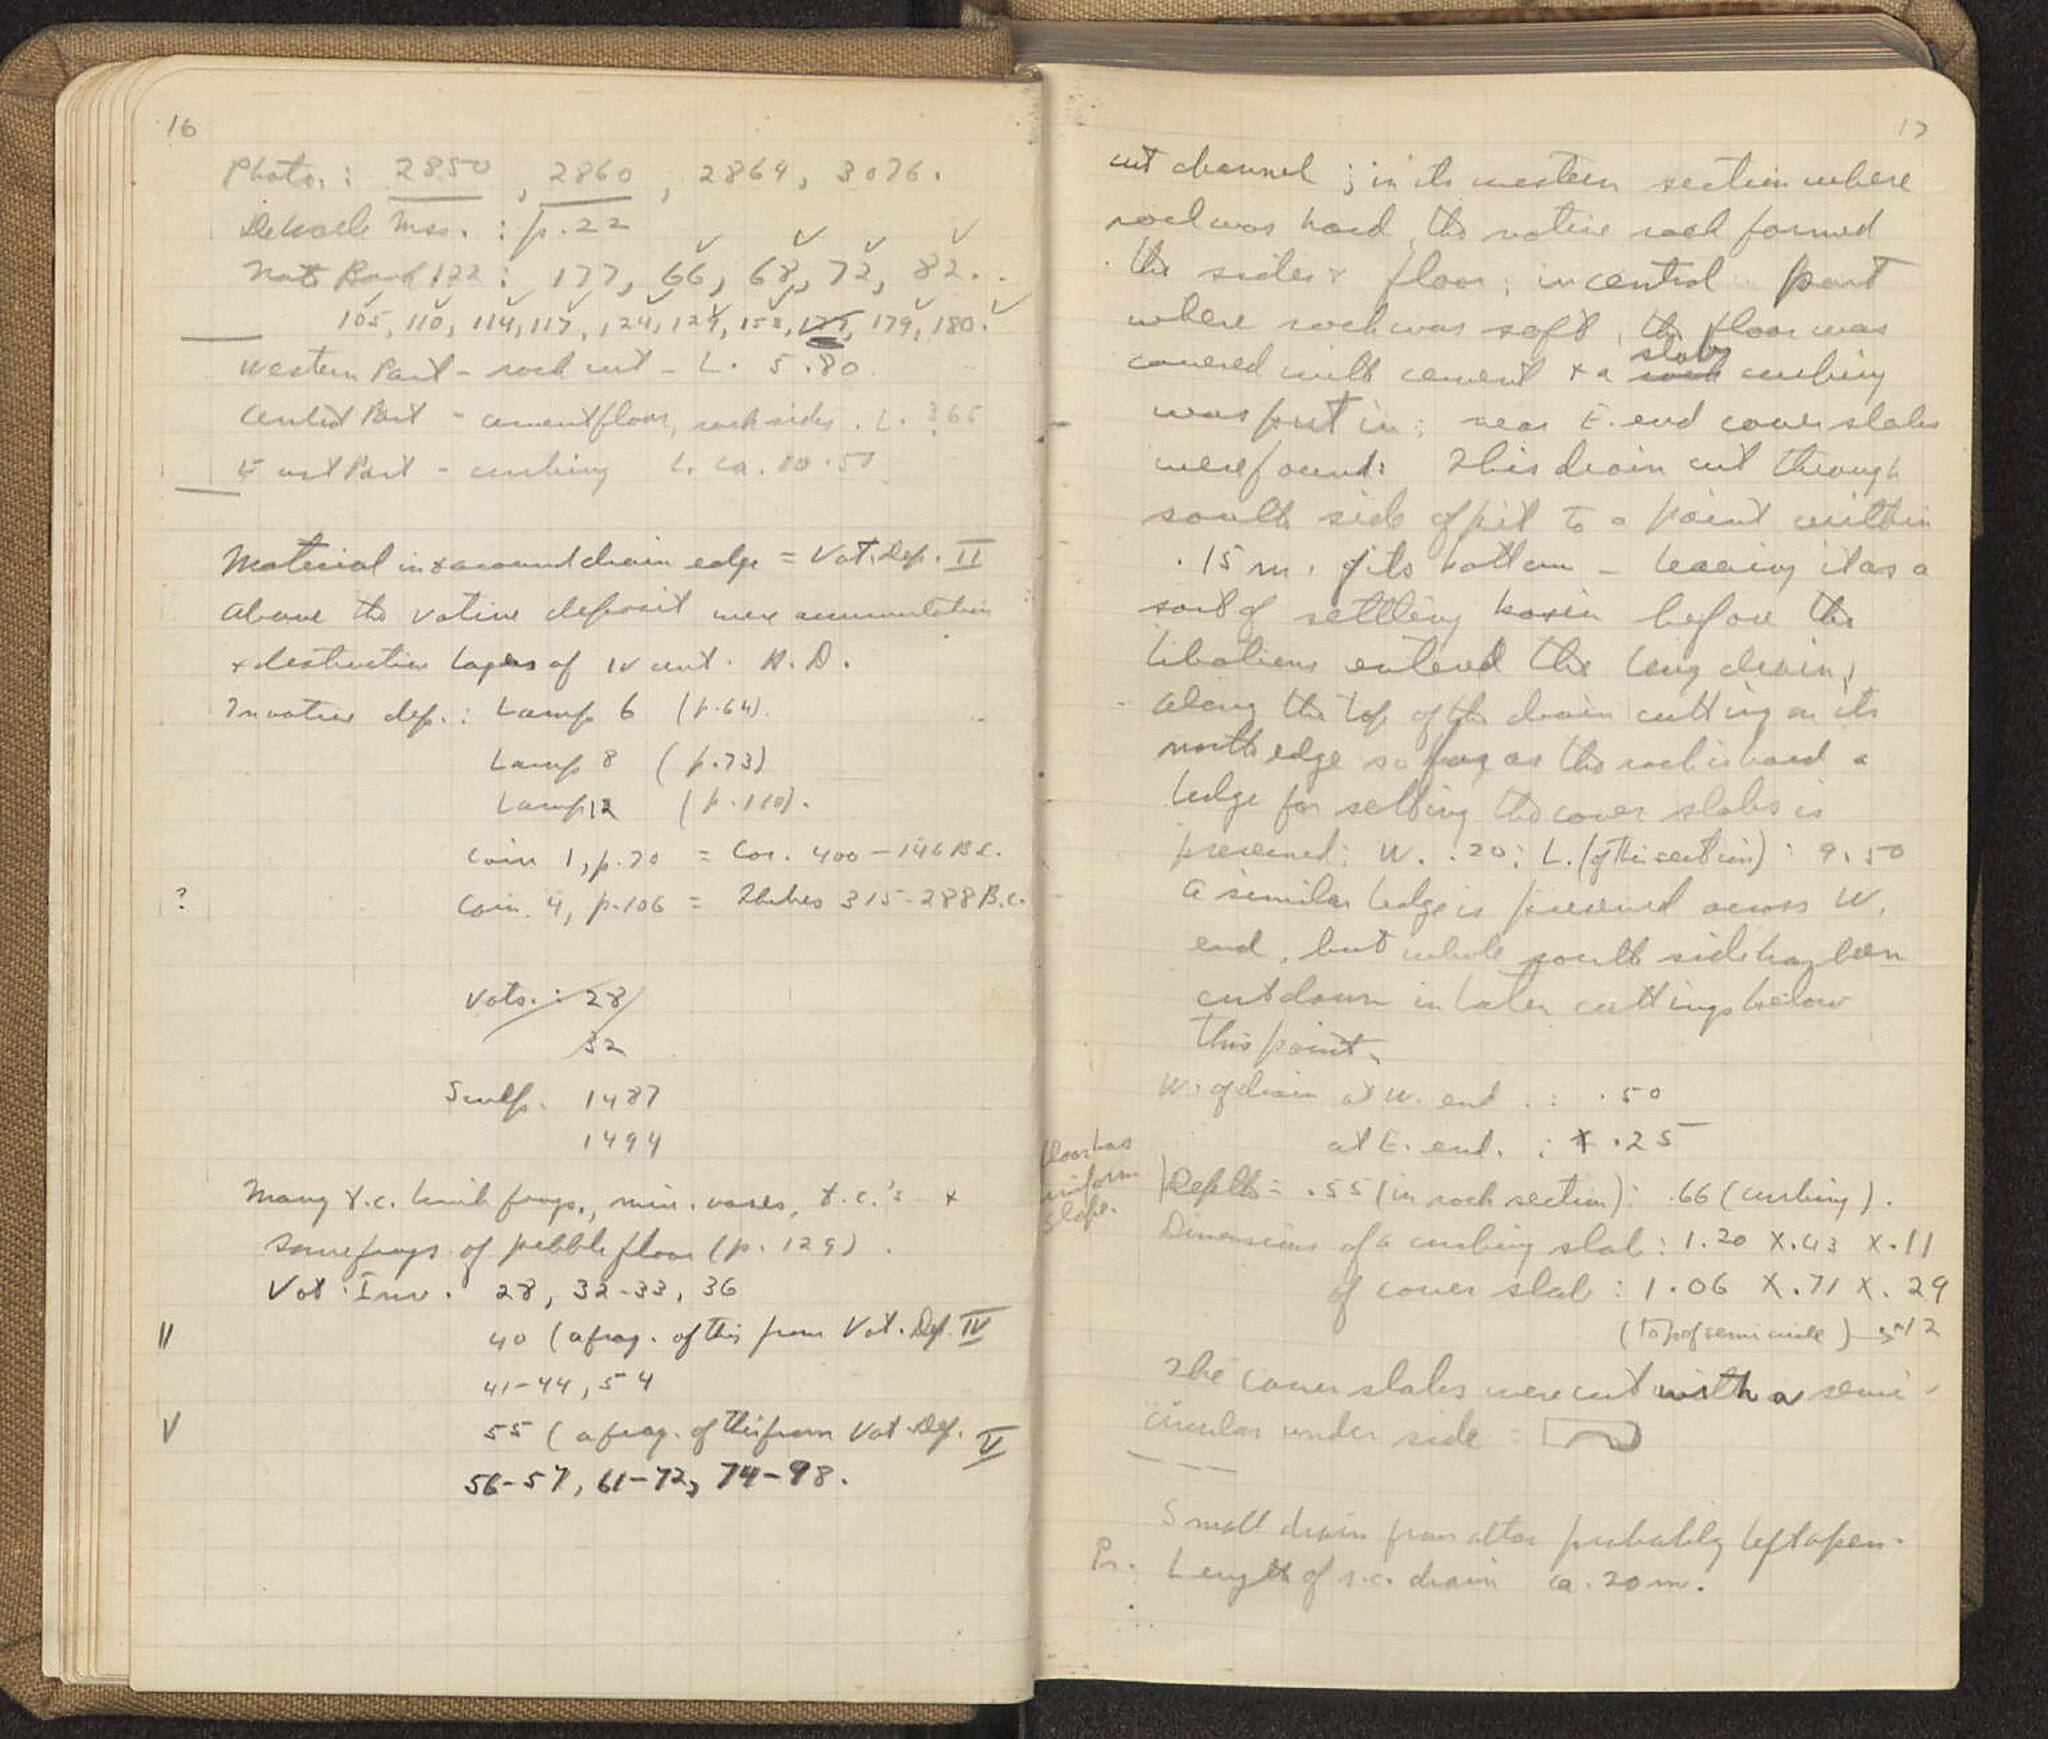 16
Photo. : 2850, 2860, 2864, 3076.
DeWaele Mss. : p. 22
Note Book 122 : 177, 66, 68, 72, 82.
105, 110, 114, 117, 124, 129, 158, 177, 179, 180.
Western Part - rock cut - L. 5.80
Central Part - cement floor, rock sides. L. 3.65
East Part - curbing L. ca. 10.50
Material in & around drain edge = Vot. Dep. II
Above the votive deposit were accumulation
& destruction layers of IV cent. A.D.
In votive dep. : Lamp 6 (p. 64).
Lamp 8 (p. 73)
Lamp 12 (p. 110).
Coin 1, p. 70 = Cor. 400 - 146 B.C.
? Coin 4, p. 106 = Thebes 315-288 B.C.
Vots. : 28
32
Sculp. 1487
1494
Many t.c. limb frags., min. vases, t.c.'s &
some frags of pebble floor (p. 129).
Vot. Inv. 28, 32-33, 36
|| 40 (a frag. of this from Vot. Dep. IV
41-44, 54
V 55 (a frag. of this from Vot. Dep. V
56-57, 61-72, 74-98.
17
cut channel ; in its western section where
rock was hard, the native rock formed
the sides & floor ; in central part
where rock was soft, the floor was
slab
covered with cement & a rock curbing
was put in ; near E. end cover slabs
were found: This drain cut through
south side of pit to a point within
.15 m. of its bottom - leaving it as a
sort of settling basin before the
libations entered the long drain,
along the top of the drain cutting on its
north edge so far as the rock is hard a
ledge for setting the cover slabs is
preserved: W. .20 ; L. (of this section) : 9.50
A similar ledge is preserved across W.
end, but whole south side has been
cut down in later cuttings below
this point.
W. of drain at W. end . : .50
at E. end. : .25
floor has
uniform
slope.
Depth = .55 (in rock section) : .66 (curbing).
Dimensions of a curbing slab : 1.20 X .43 X .11
of cover slab : 1.06 X .71 X .29
(top of semi circle) .12
The cover slabs were cut with a semi-
circular under side :
Small drain from altar probably left open.
Pr. Length of s.c. drain ca. 20 m.